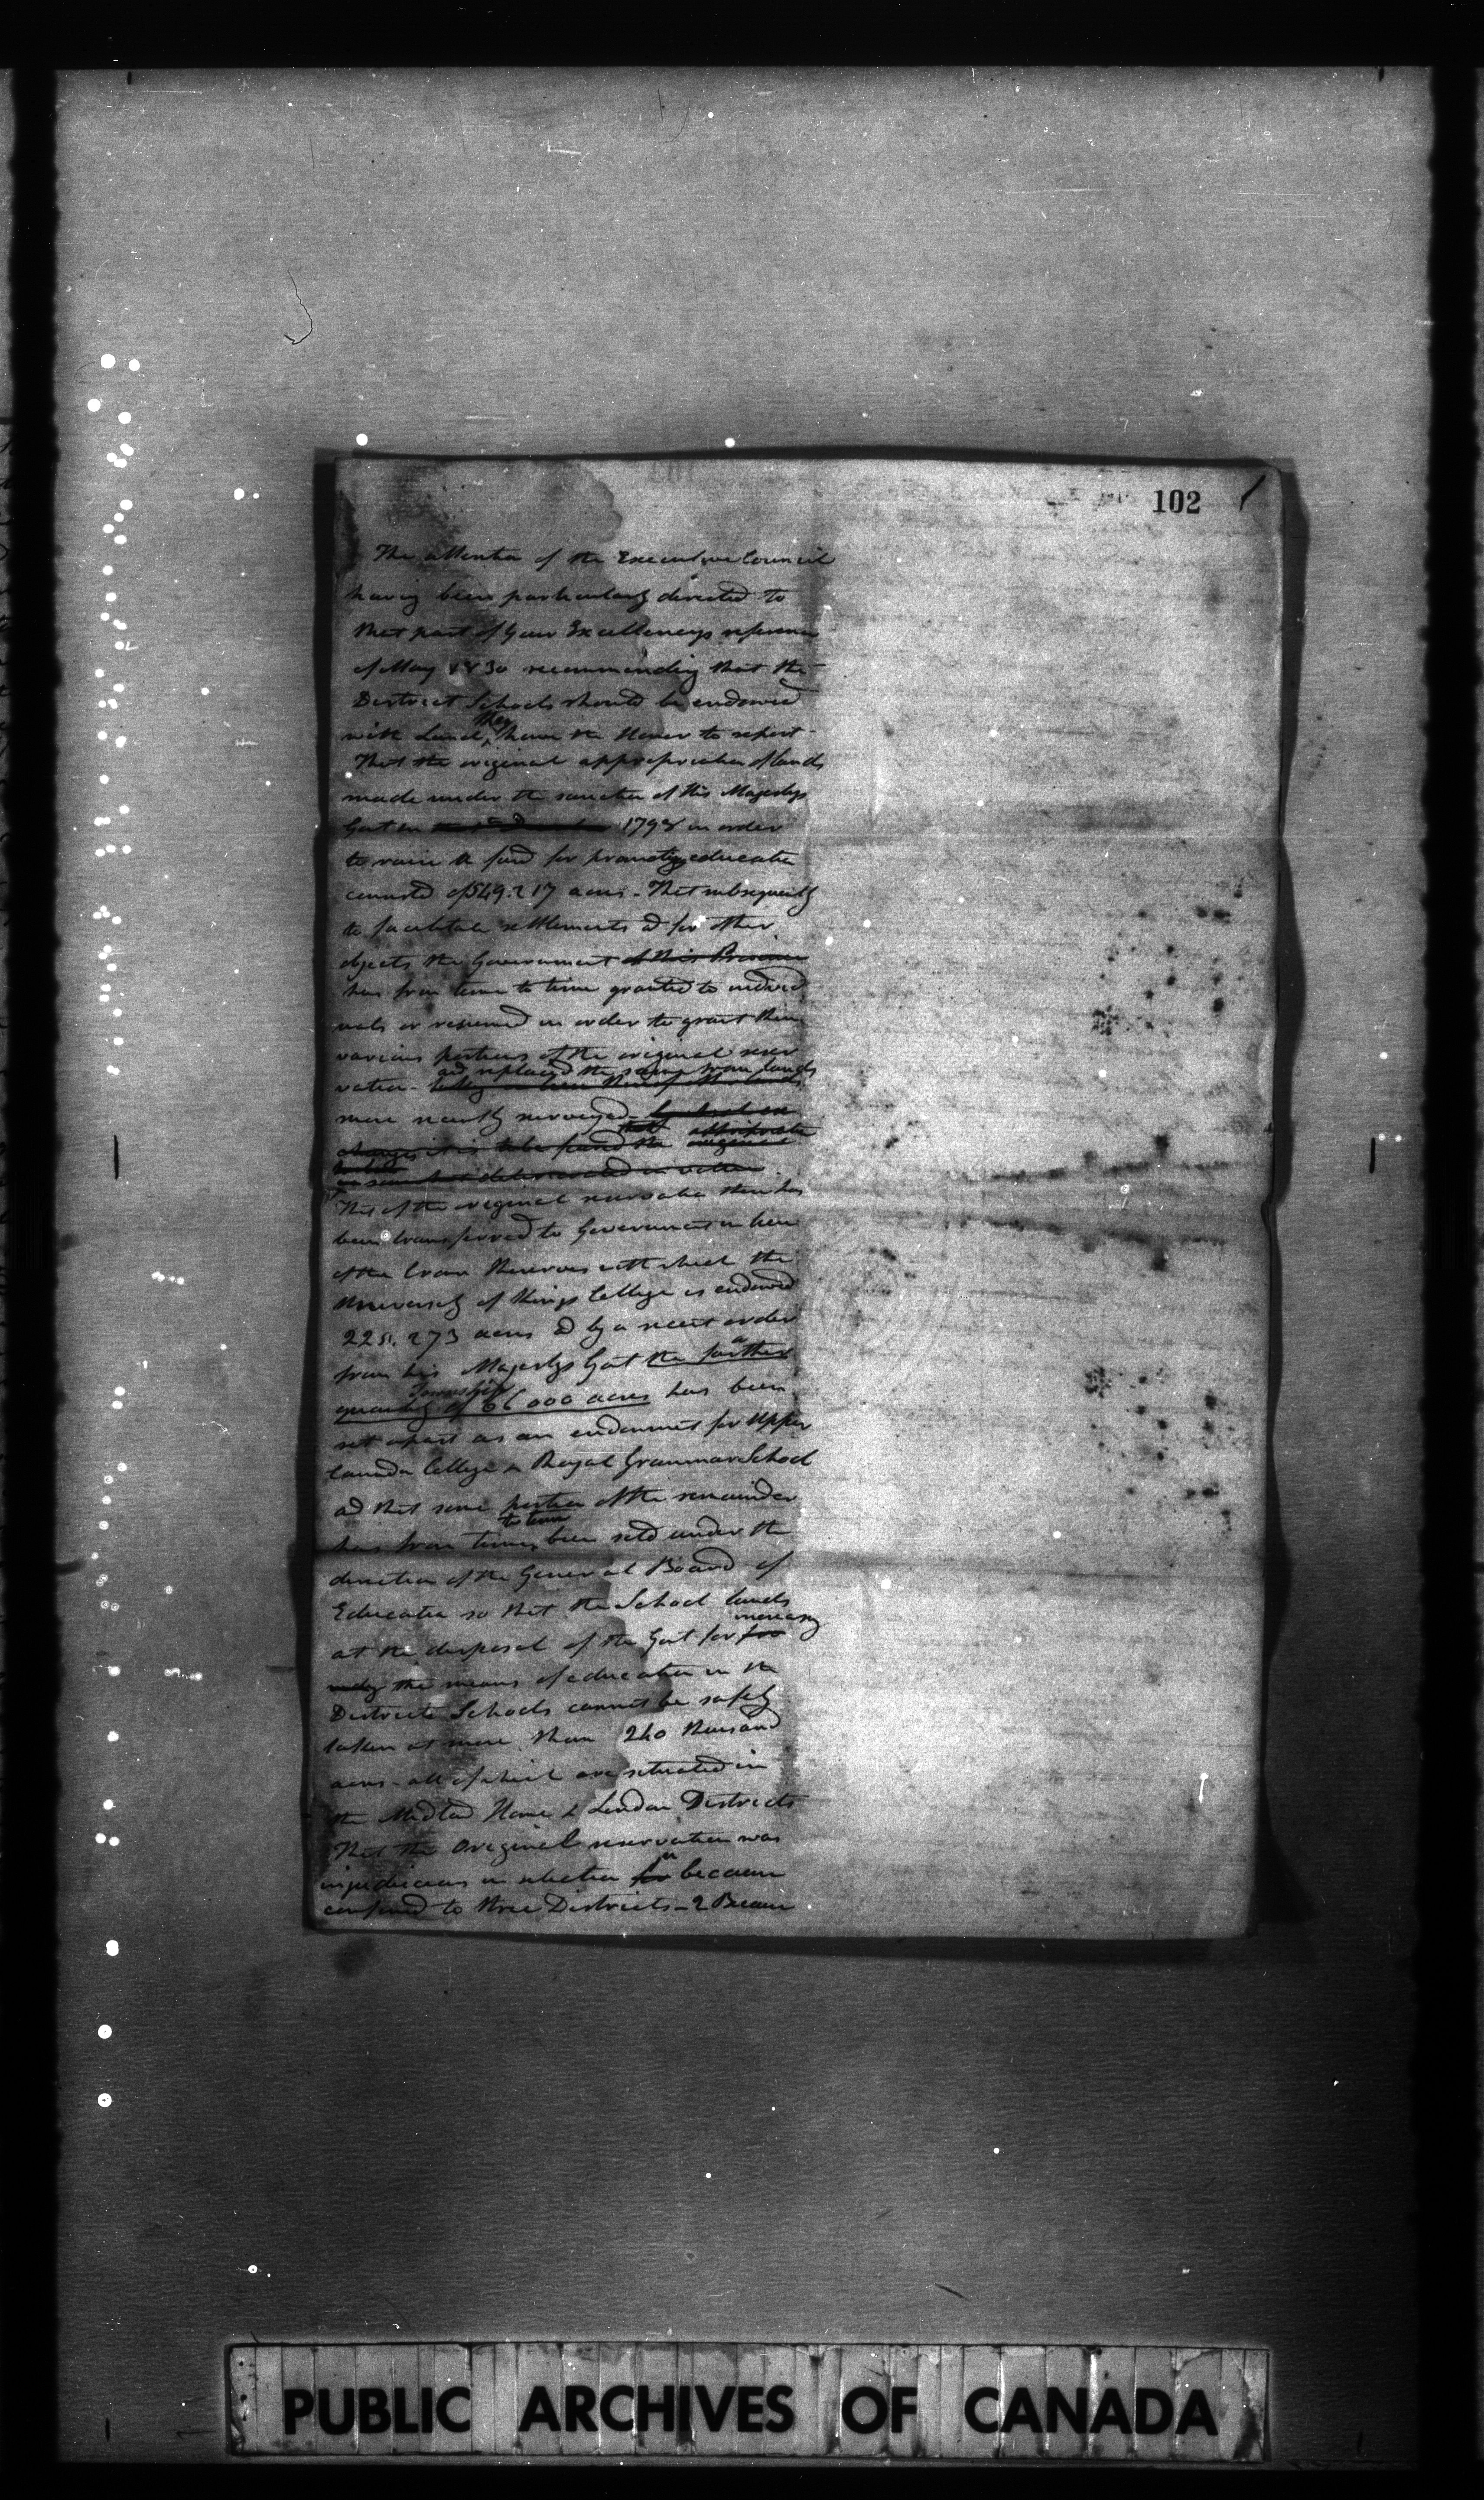 102
The attention of the Executive Council
having been particularly directed to
that part of your Excellencys reference
of May 1830 recommending that the
District Schools should be endowed
they
with Land, have the Honor to report -
That the original appropriation of lands
made under the sanction of His Majestys
Govt in 1798 in order
to raise a fund for promoting education
consisted of 549.217 acres - That subsequently
to facilitate settlements ad for other
objects the Government of this Province
has from time to time granted to individ
uals or resumed in order to grant them
various portions of the original reser
and replaced the same from lands
vation - taking in lieu thereof other lands
more newly surveyed -
it is to be found the original
deteriorated in value
That of the original reservation there has
been transferred to Government in lieu
of the Crown Reserves with which the
University of Kings College is endowed
225.273 acres ad by a recent order
a
from his Majestys Govt the further
Township
quantity of 66000 acres has been
set apart as an endowment for Upper
Canada College & Royal Grammar School
ad that some portion of the remainder
to time
has from time, been sold under the
direction of the General Board of
Education so that the School lands
increasing
at the disposal of the Govt for
the means of education in the
Districts Schools cannot be safely
taken at more than 240 thousand
acres - all of which are situated in
the Midland Home & London Districts
That the Original reservation was
injudicious in selection for because
confined to three Districts - 2 Because
PUBLIC ARCHIVES OF CANADA